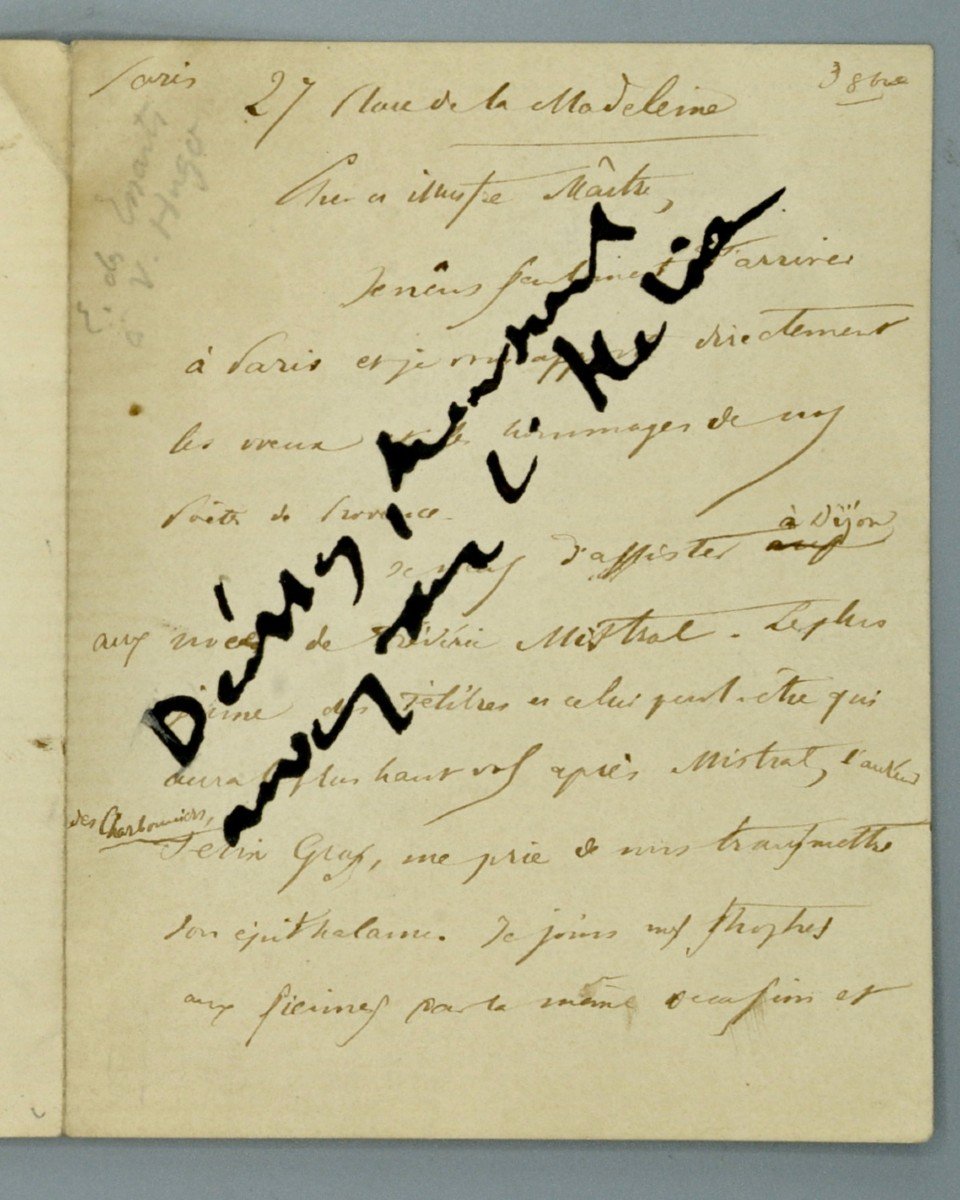 Paris
27 Place de la Madeleine
3 8bre
E. des Essarts
à V. Hugo
Cher et illustre Maître,
Je
arrive
à Paris et je vous directement
les vœux hommages de nos
Poètes de Provence.
Je d'assister à Dijon
aux noces de Frédéric Mistral. Le plus
jeune des Félibres et celui peut-être qui
aura le plus haut vol après Mistral, l'auteur
des Charbonniers,
Félix Gras, me prie de vous transmettre
son épithalame. Je joins mes strophes
aux siennes par la même occasion et